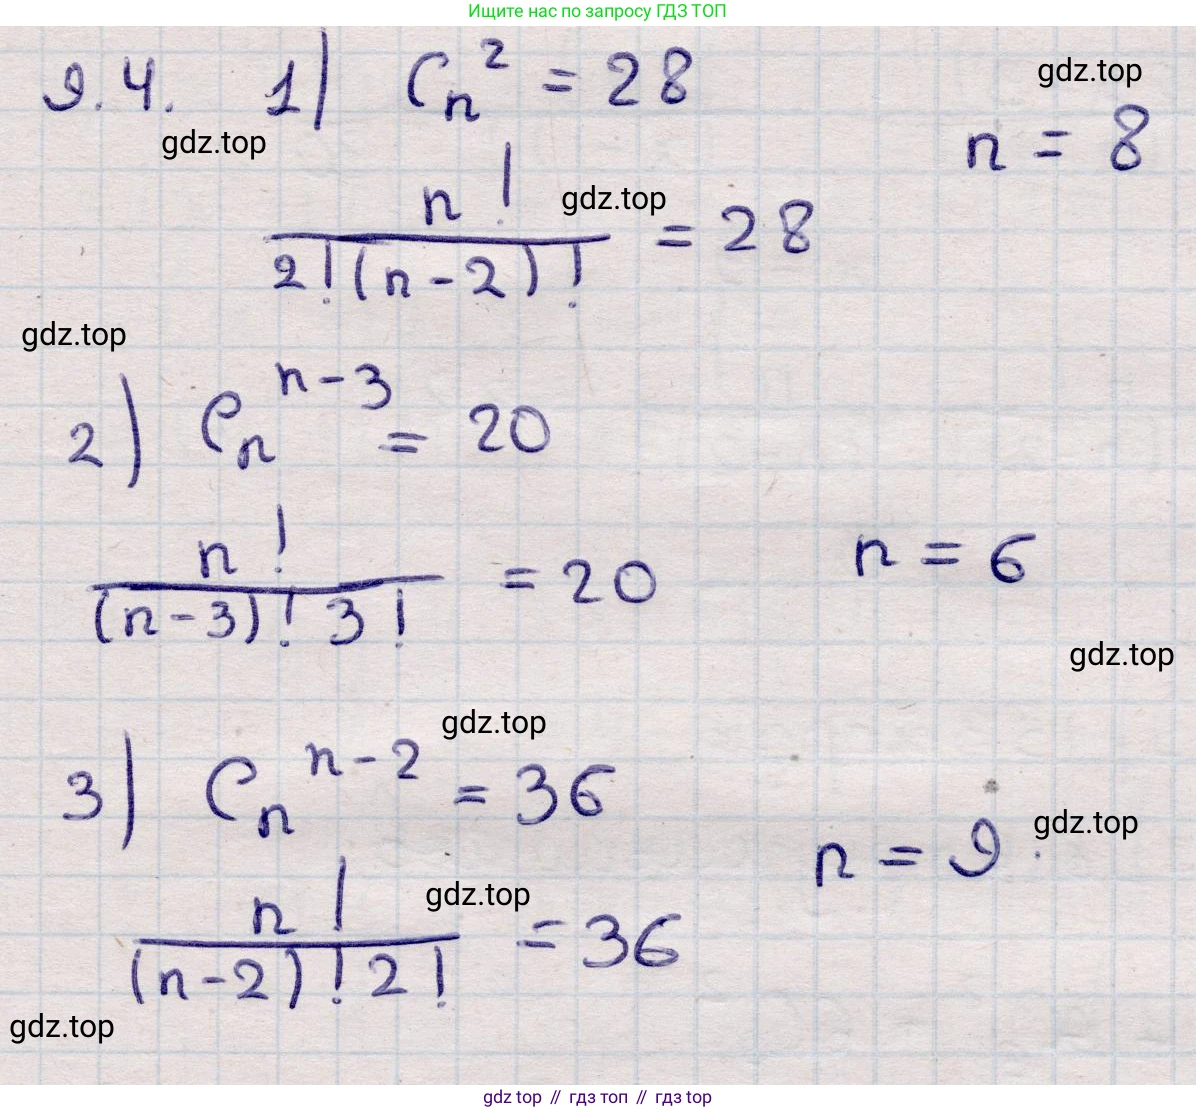 Ищите нас по запросу ГДЗ ТОП
9.4. 1) C_n^2 = 28
gdz.top
gdz.top
n = 8
n! / 2!(n-2)! = 28
gdz.top
gdz.top
2) C_n^{n-3} = 20
n! / (n-3)! 3! = 20
n = 6
gdz.top
gdz.top
3) C_n^{n-2} = 36
n = 9
gdz.top
n! / (n-2)! 2! = 36
gdz.top
gdz.top
gdz top // гдз топ // гдз top